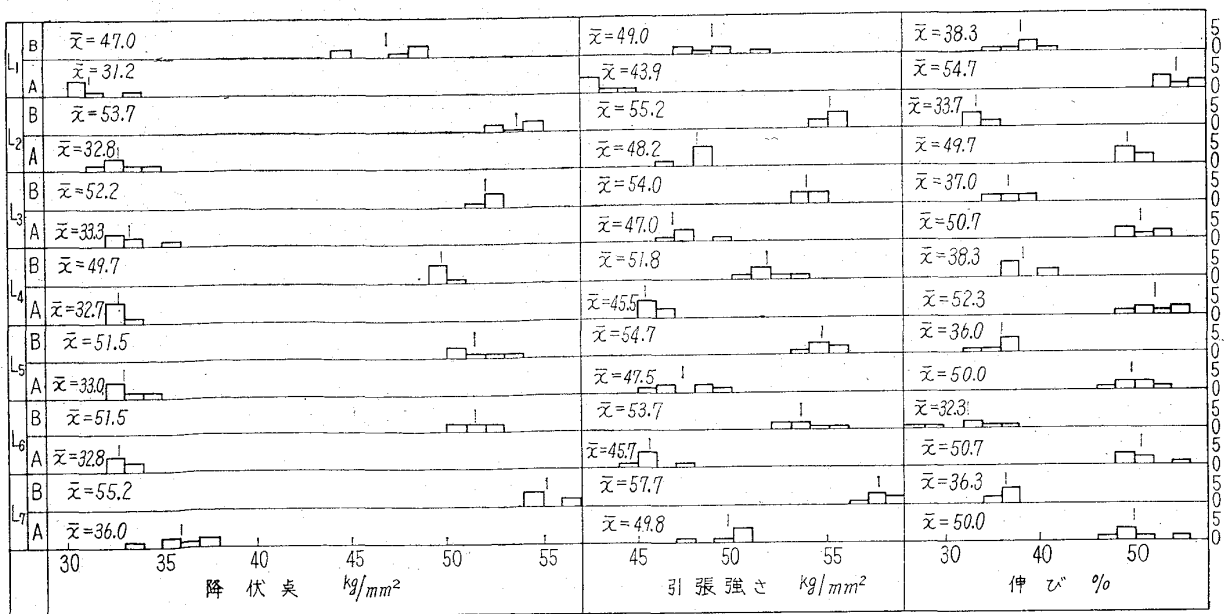 L1 B x̄=47.0 x̄=49.0 x̄=38.3 5 0
A x̄=31.2 x̄=43.9 x̄=54.7 5 0
L2 B x̄=53.7 x̄=55.2 x̄=33.7 5 0
A x̄=32.8 x̄=48.2 x̄=49.7 5 0
L3 B x̄=52.2 x̄=54.0 x̄=37.0 5 0
A x̄=33.3 x̄=47.0 x̄=50.7 5 0
L4 B x̄=49.7 x̄=51.8 x̄=38.3 5 0
A x̄=32.7 x̄=45.5 x̄=52.3 5 0
L5 B x̄=51.5 x̄=54.7 x̄=36.0 5 0
A x̄=33.0 x̄=47.5 x̄=50.0 5 0
L6 B x̄=51.5 x̄=53.7 x̄=32.3 5 0
A x̄=32.8 x̄=45.7 x̄=50.7 5 0
L7 B x̄=55.2 x̄=57.7 x̄=36.3 5 0
A x̄=36.0 x̄=49.8 x̄=50.0 5 0
30 35 40 45 50 55 45 50 55 30 40 50
降伏点 kg/mm² 引張強さ kg/mm² 伸び %